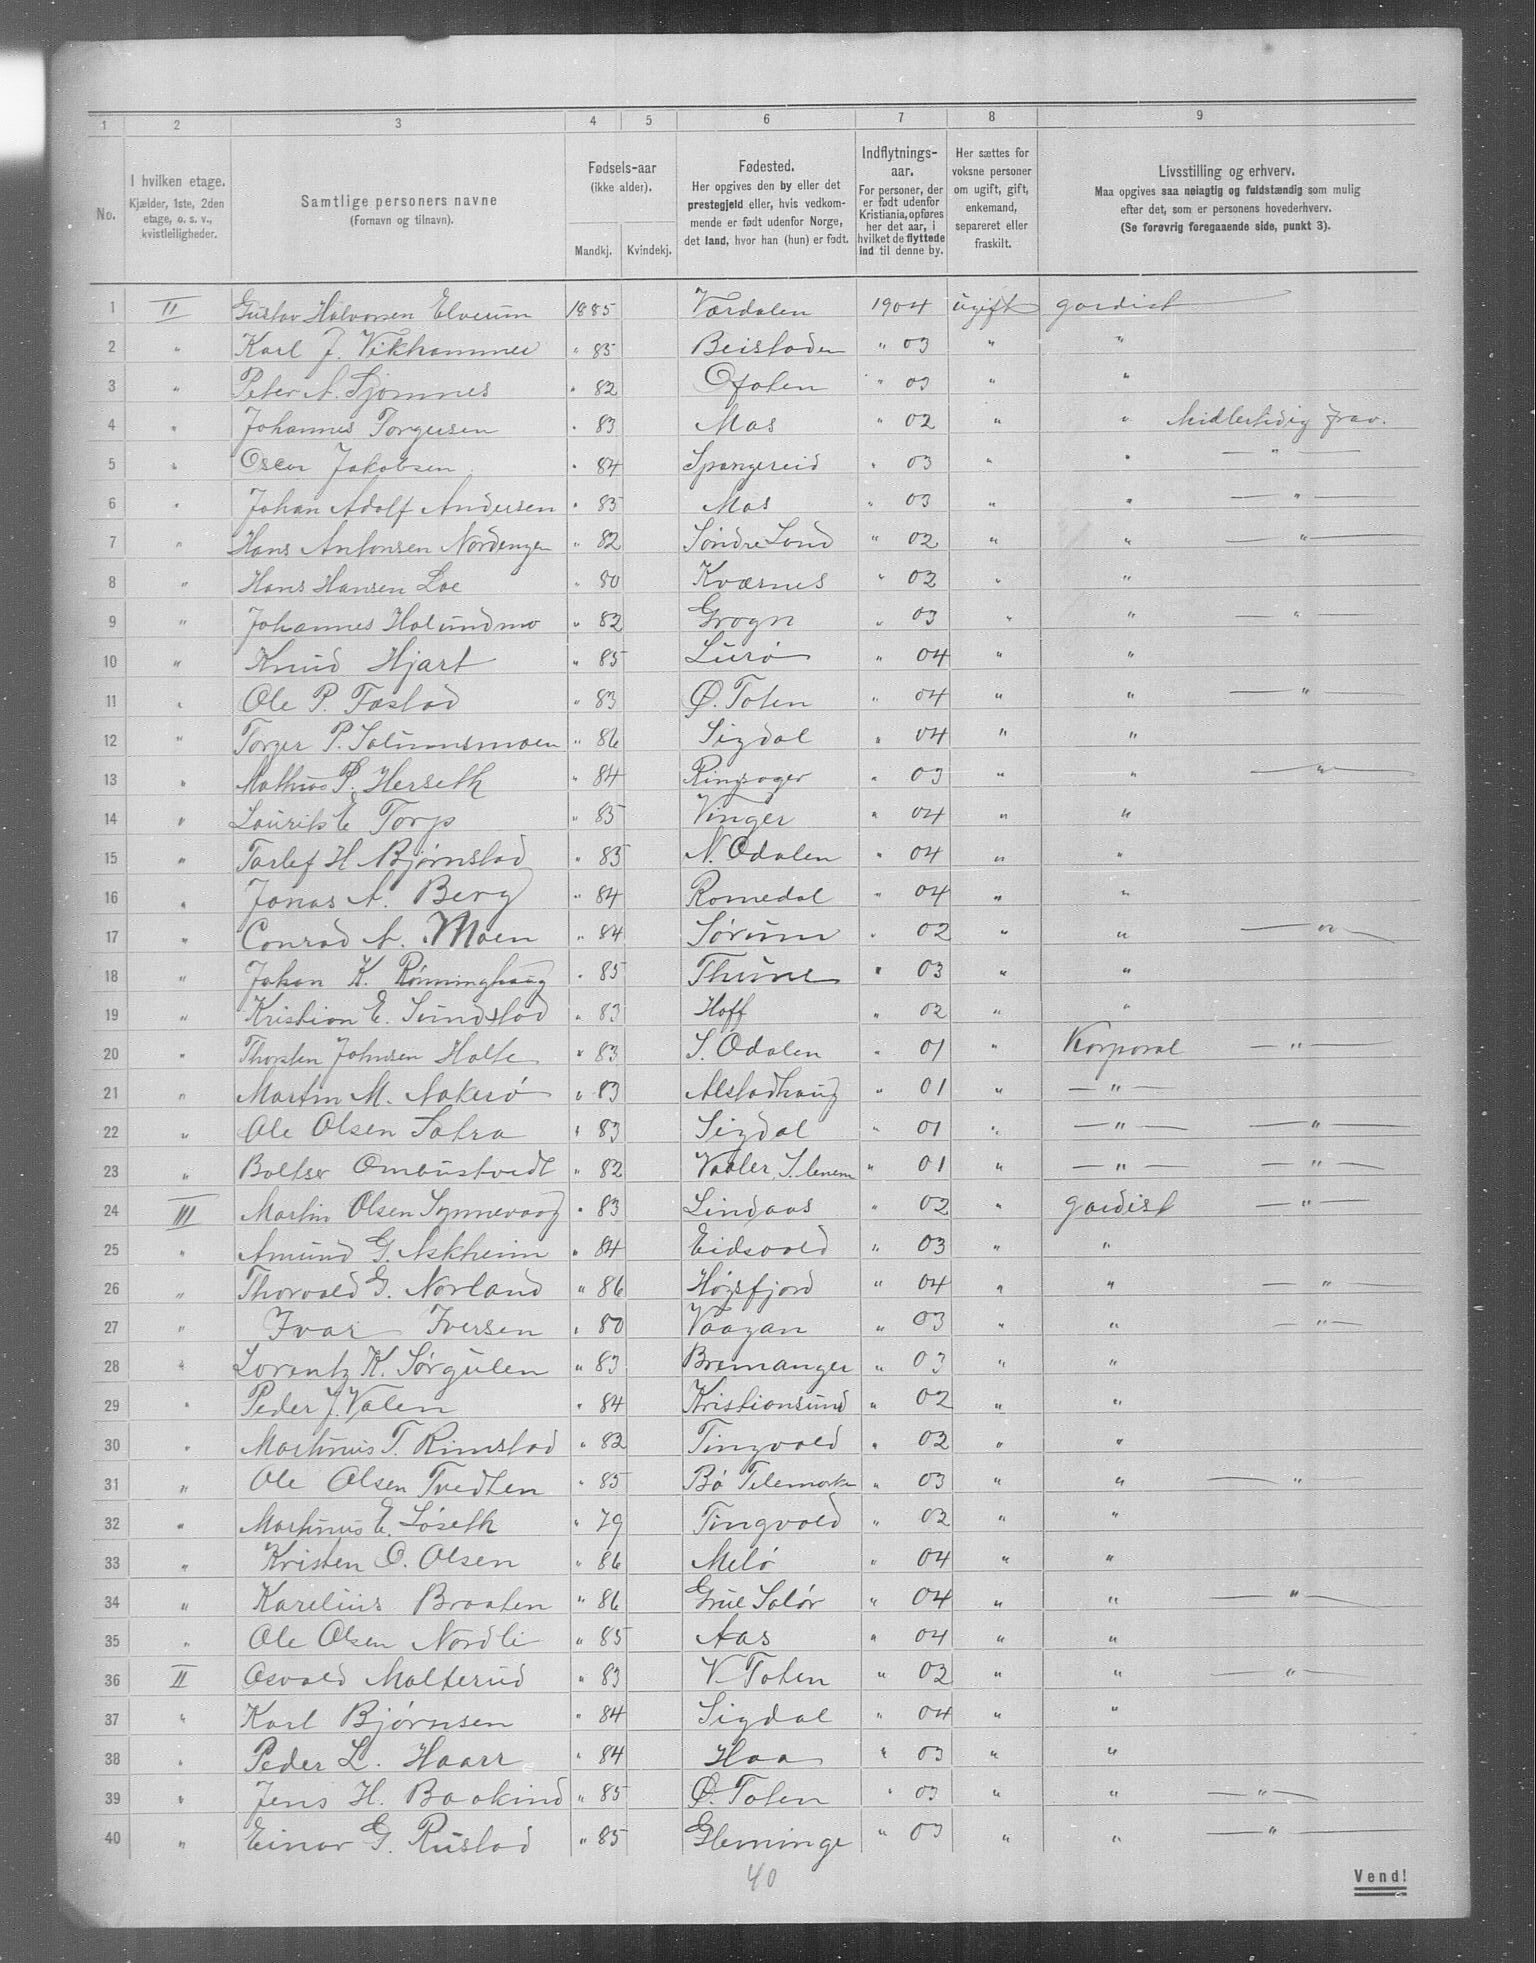 1 2 3 4 5 6 7 8 9
No.
I hvilken etage.
Kjælder, 1ste, 2den
etage, o. s. v.,
kvistleiligheder.
Samtlige personers navne
(Fornavn og tilnavn).
Fødsels-aar
(ikke alder).
Mandkj. Kvindekj.
Fødested.
Her opgives den by eller det
prestegjeld eller, hvis vedkom-
mende er født udenfor Norge,
det land, hvor han (hun) er født.
Indflytnings-
aar.
For personer, der
er født udenfor
Kristiania, opføres
her det aar, i
hvilket de flyttede
ind til denne by.
Her sættes for
voksne personer
om ugift, gift,
enkemand,
separeret eller
fraskilt.
Livsstilling og erhverv.
Maa opgives saa nøiagtig og fuldstændig som mulig
efter det, som er personens hovederhverv.
(Se forøvrig foregaaende side, punkt 3).
1 II Gustav Halvorsen Elverum 1885 Værdalen 1904 ugift gardist
2 " Karl J. Vikhammer " 85 Beistaden " 03 " "
3 " Peter A. " 82 Ofoten " 03 " "
4 " Johannes Torgersen " 83 Mos " 02 " " Midlertidig frav.
5 " Oscar Jakobsen " 84 Spangereid " 03 " " — " —
6 " Johan Adolf Andersen " 83 Mos " 03 " " — " —
7 " Hans Antonsen Nordengen " 82 Søndre Land " 02 " " — " —
8 " Hans Hansen Loe " 80 Kværnes " 02 " "
9 " Johannes " 82 Grogn " 03 " " — " —
10 " Knud Hjart " 85 Lurø " 04 " "
11 " Ole P. Fæstad " 83 Ø. Toten " 04 " " — " —
12 " Torger P. " 86 Sigdal " 04 " "
13 " Mathias P. Herseth " 84 Ringsager " 03 " " — " —
14 " Laurits E Torp " 85 Vinger " 04 " "
15 " Tarlef H Bjørnstad " 83 N. Odalen " 04 " "
16 " Jonas A. Berg " 84 Romedal " 04 " "
17 " Conrad A. Moen " 84 Sørum " 02 " " — " —
18 " Johan K. Rønninghaug " 85 Thune " 03 " "
19 " Kristian E. Sundstad " 83 Hoff " 02 " "
20 " Thorsten Johnsen Holte " 83 S. Odalen " 01 " Korporal — " —
21 " Martin M. Aakerø " 83 Alstadhaug " 01 " — " —
22 " Ole Olsen Satra " 83 Sigdal " 01 " — " — — " —
23 " Baltser " 82 Vaaler, " 01 " — " — — " —
24 III Martin Olsen Synnevaag " 83 Lindaas " 02 " gardist — " —
25 " Amund G. Askheim " 84 Eidsvold " 03 " "
26 " Thorvald G. Norland " 86 Høgsfjord " 04 " " — " —
27 " Ivar Iversen " 80 Vaagan " 03 " " — " —
28 " Lorentz K. Sørgulen " 83 Bremanger " 03 " "
29 " Peder J. Valen " 84 Kristiansund " 02 " "
30 " Martinus T. Rimstad " 82 Tingvold " 02 " "
31 " Ole Olsen Tvedten " 85 Bø Telemarken " 03 " " — " —
32 " Martinus E. Løseth " 79 Tingvold " 02 " "
33 " Kristen O. Olsen " 86 Melø " 04 " "
34 " Karelius Braaten " 86 Grue Solør " 04 " " — " —
35 " Ole Olsen Nordli " 85 Aas " 04 " "
36 II Osvald Malterud " 83 V Toten " 02 " " — " —
37 " Karl Bjørnsen " 84 Sigdal " 04 " "
38 " Peder L. Haarr " 84 Haa " 03 " "
39 " Jens H. Baakind " 85 Ø. Toten " 03 " " — " —
40 " Einar G. Rustad " 85 Gleminge " 03 " " — " —
40
Vend!